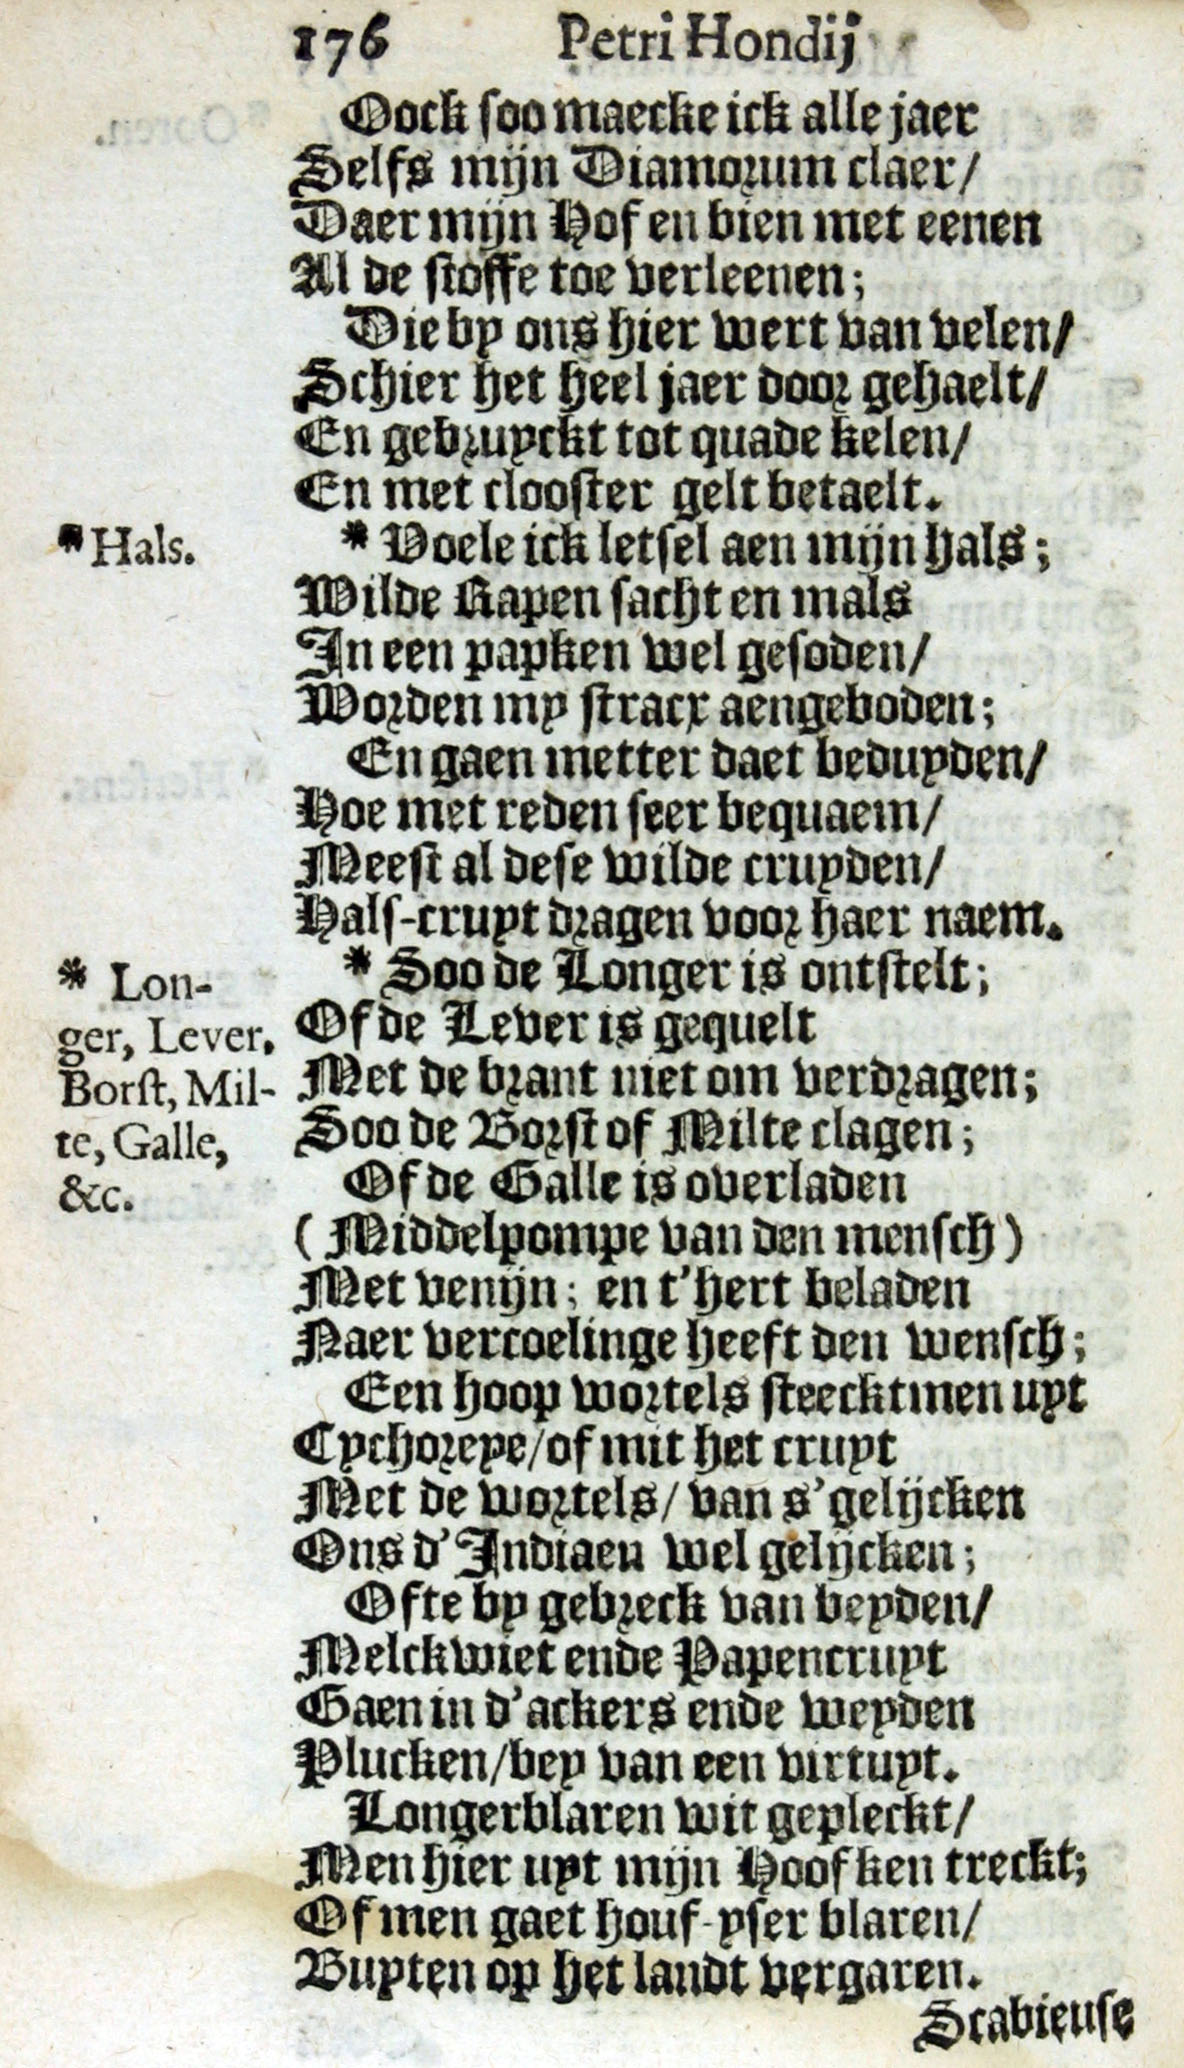 176 Petri Hondij
Oock soo maecke ick alle jaer
Selfs mijn Diamorum claer/
Daer mijn Hof en bien met eenen
Al de stoffe toe verleenen;
Die by ons hier wert van velen/
Schier het heel jaer door gehaelt/
En gebruyckt tot quade kelen/
En met clooster gelt betaelt.
*Hals.
* Voele ick letsel aen mijn hals;
Wilde Rapen sacht en mals
In een papken wel gesoden/
Worden my stracx aengeboden;
En gaen metter daet beduyden/
Hoe met reden seer bequaem/
Meest al dese wilde cruyden/
Hals-cruyt dragen voor haer naem.
* Lon-
ger, Lever,
Borst, Mil-
te, Galle,
&c.
* Soo de Longer is ontstelt;
Of de Lever is gequelt
Met de brant niet om verdragen;
Soo de Borst of Milte clagen;
Of de Galle is overladen
(Middelpompe van den mensch)
Met venijn; en t'hert beladen
Naer vercoelinge heeft den wensch;
Een hoop wortels steecktmen uyt
Cychoreye/of mit het cruyt
Met de wortels/ van s'gelijcken
Ons d'Indiaen wel gelijcken;
Ofte by gebreck van beyden/
Melckwiet ende Papencruyt
Gaen in d'ackers ende weyden
Plucken/bey van een virtuyt.
Longerblaren wit gepleckt/
Men hier uyt mijn Hoofken treckt;
Of men gaet houf-yser blaren/
Buyten op het landt vergaren.
Scabieuse